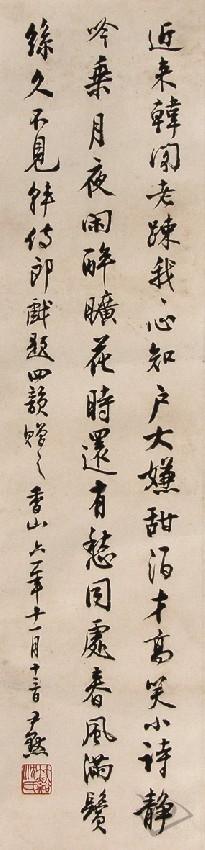 近来韓閣老疎我々心知户大嫌甜酒才高笑小詩静
吟乘月夜閑醉曠花時還有愁同處春風滿鬢
絲久不見韓侍郎戲題四韻贈之香山六一年十一月十日尹默